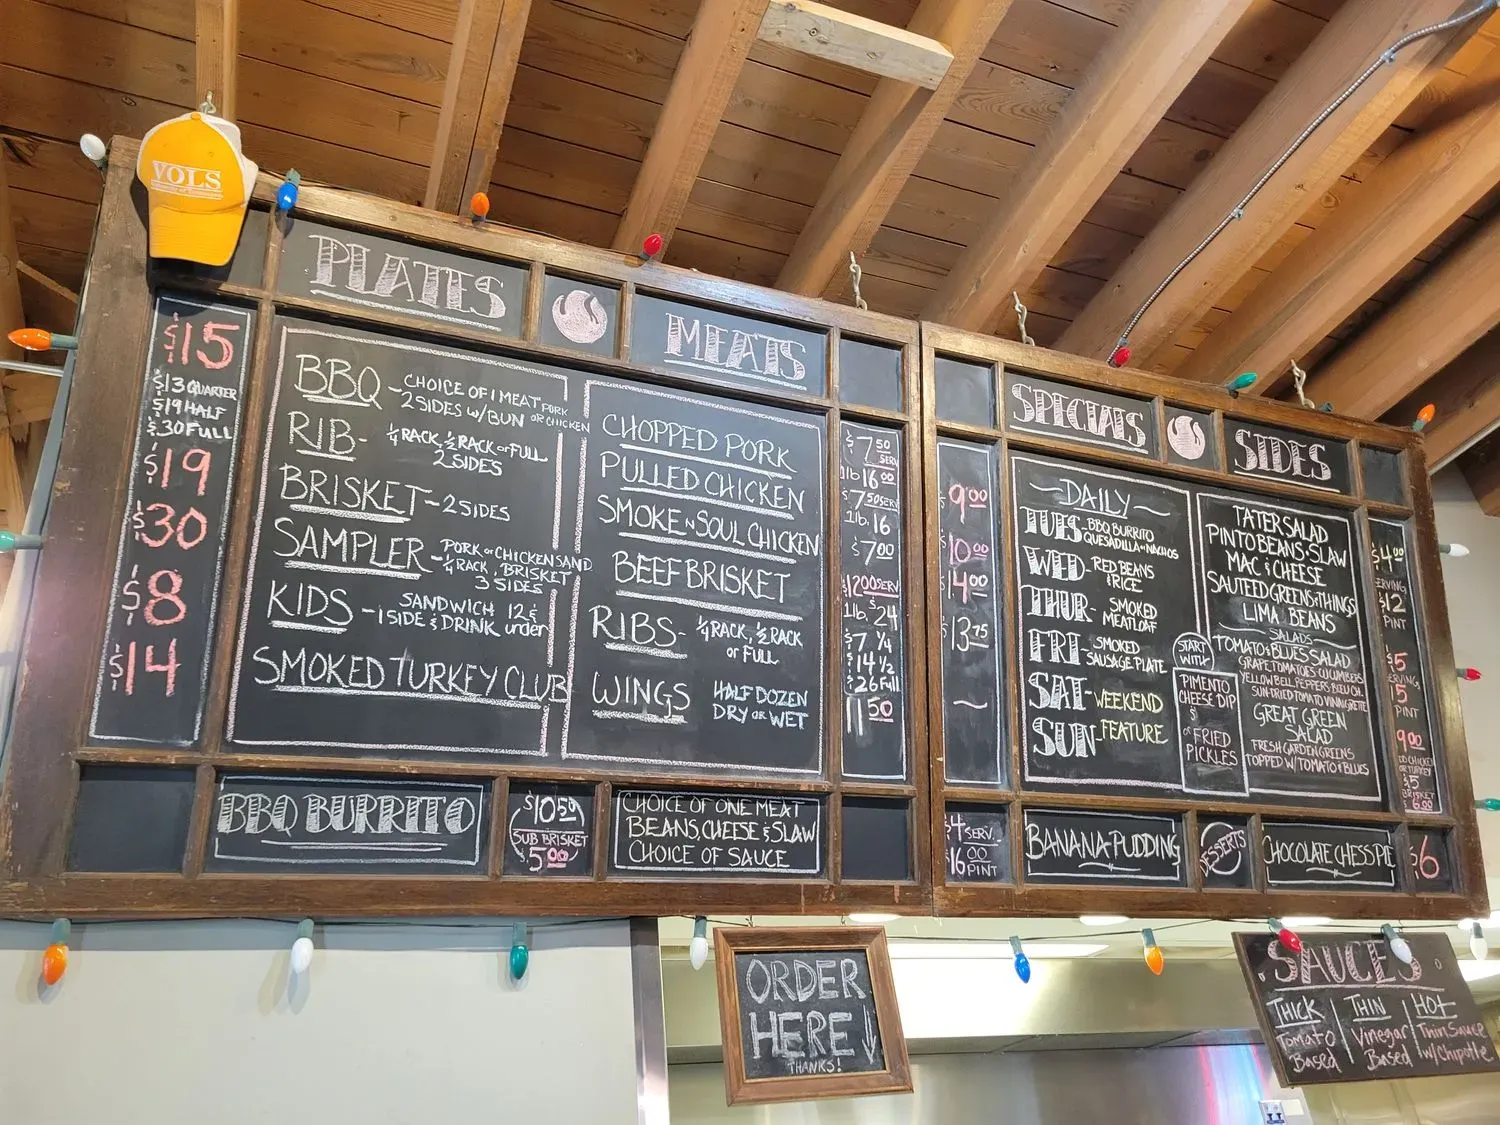 VOLS
PLATES
$15
$13 QUARTER
$19 HALF
$30 FULL
$19
$30
$8
$14
BBQ - CHOICE OF 1 MEAT PORK OR CHICKEN
2 SIDES W/ BUN
RIB - ¼ RACK, ½ RACK OR FULL
2 SIDES
BRISKET - 2 SIDES
SAMPLER - PORK OR CHICKEN SAND
¼ RACK, BRISKET
3 SIDES
KIDS - SANDWICH 12 &
1 SIDE & DRINK under
SMOKED TURKEY CLUB
MEATS
CHOPPED PORK
PULLED CHICKEN
SMOKE N SOUL CHICKEN
BEEF BRISKET
RIBS - ¼ RACK, ½ RACK
OR FULL
WINGS HALF DOZEN
DRY OR WET
$7.50 SERV
1lb 16.00
$7.50 SERV
1lb. 16
$7.00
$12.00 SERV
1lb. $24
$7 ¼
$14 ½
$26 Full
11.50
BBQ BURRITO
$10.50
SUB BRISKET
$5.00
CHOICE OF ONE MEAT
BEANS, CHEESE & SLAW
CHOICE OF SAUCE
SPECIALS
9.00
10.00
14.00
13.75
~
~DAILY~
TUES - BBQ BURRITO
QUESADILLA OR NACHOS
WED - RED BEANS
& RICE
THUR - SMOKED
MEATLOAF
FRI - SMOKED
SAUSAGE PLATE
SAT - WEEKEND
SUN - FEATURE
START
WITH
PIMENTO
CHEESE DIP
$
OR FRIED
PICKLES
SIDES
TATER SALAD
PINTO BEANS & SLAW
MAC & CHEESE
SAUTEED GREENS & THINGS
LIMA BEANS
SALADS
TOMATO & BLUES SALAD
GRAPE TOMATOES CUCUMBERS
YELLOW BELL PEPPERS BLEU CH.
SUN-DRIED TOMATO VINAIGRETTE
GREAT GREEN
SALAD
FRESH GARDEN GREENS
TOPPED W/ TOMATO & BLUES
$4.00
ERVING
$12
PINT
$5
ERVING
5
PINT
9.00
DD CHICKEN
OR TURKEY
$5
BRISKET
$6.00
$4 SERV.
$16.00 PINT
BANANA PUDDING
DESSERTS
CHOCOLATE CHESS PIE
$6
ORDER
HERE ↓
THANKS!
SAUCES
THICK
Tomato
Based
THIN
Vinegar
Based
HOT
Thin Sauce
w/ Chipotle